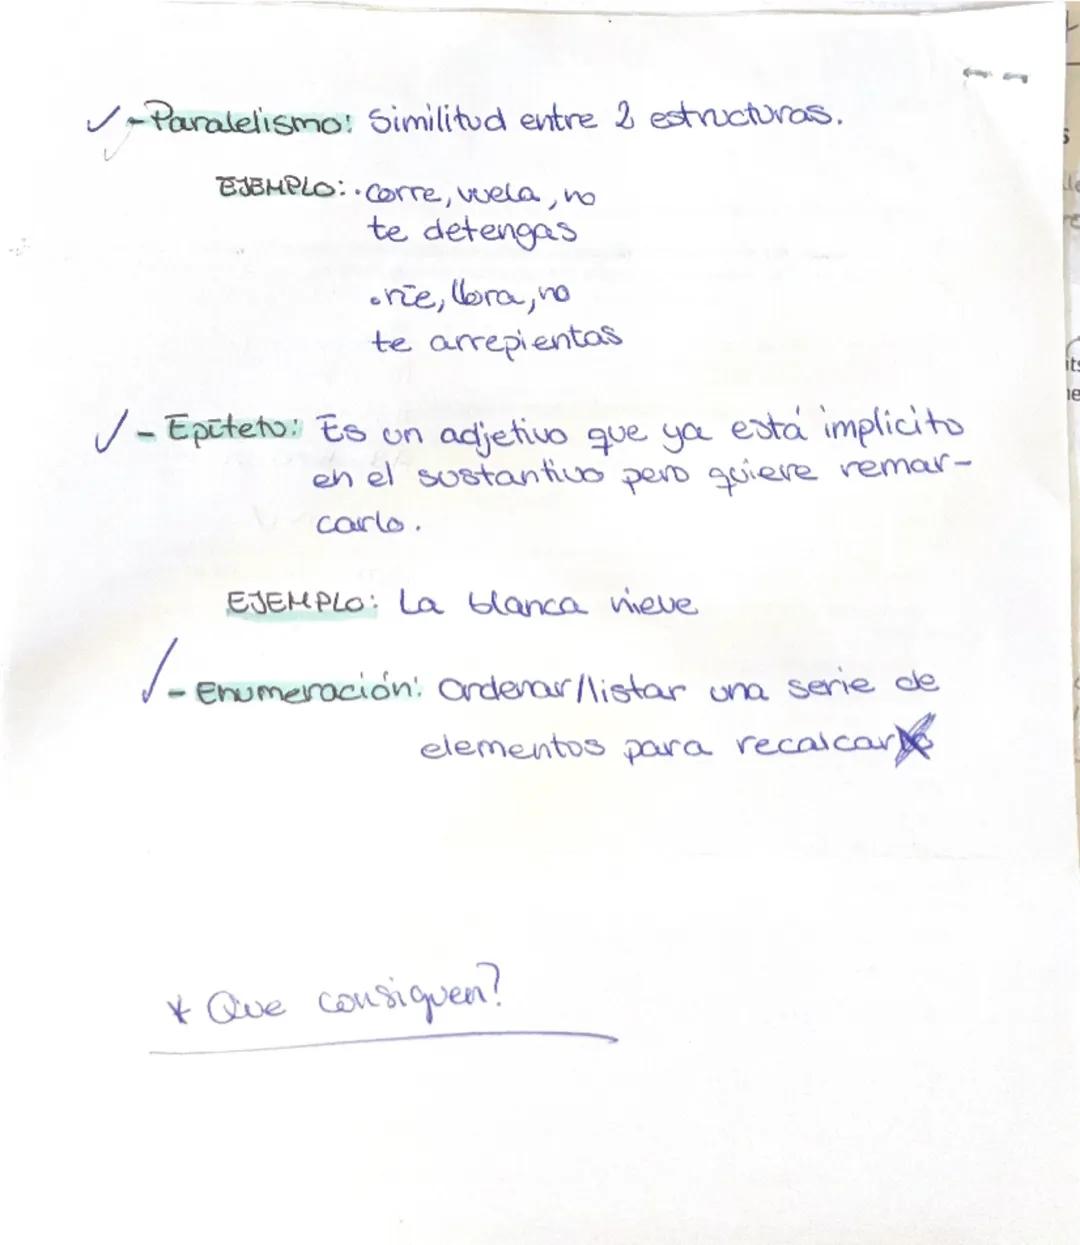 - Paralelismo: Similitud entre 2 estructuras.
EJEMPLO: · corre, vuela, no
te detengas
· ríe, llora, no
te arrepientas
- Epíteto: Es un adjetivo que ya está implicito
en el sustantivo pero quiere remar-
carlo.
EJEMPLO: La blanca nieve
- Enumeración: Ordenar/listar una serie de
elementos para recalcar
* Que consiguen?